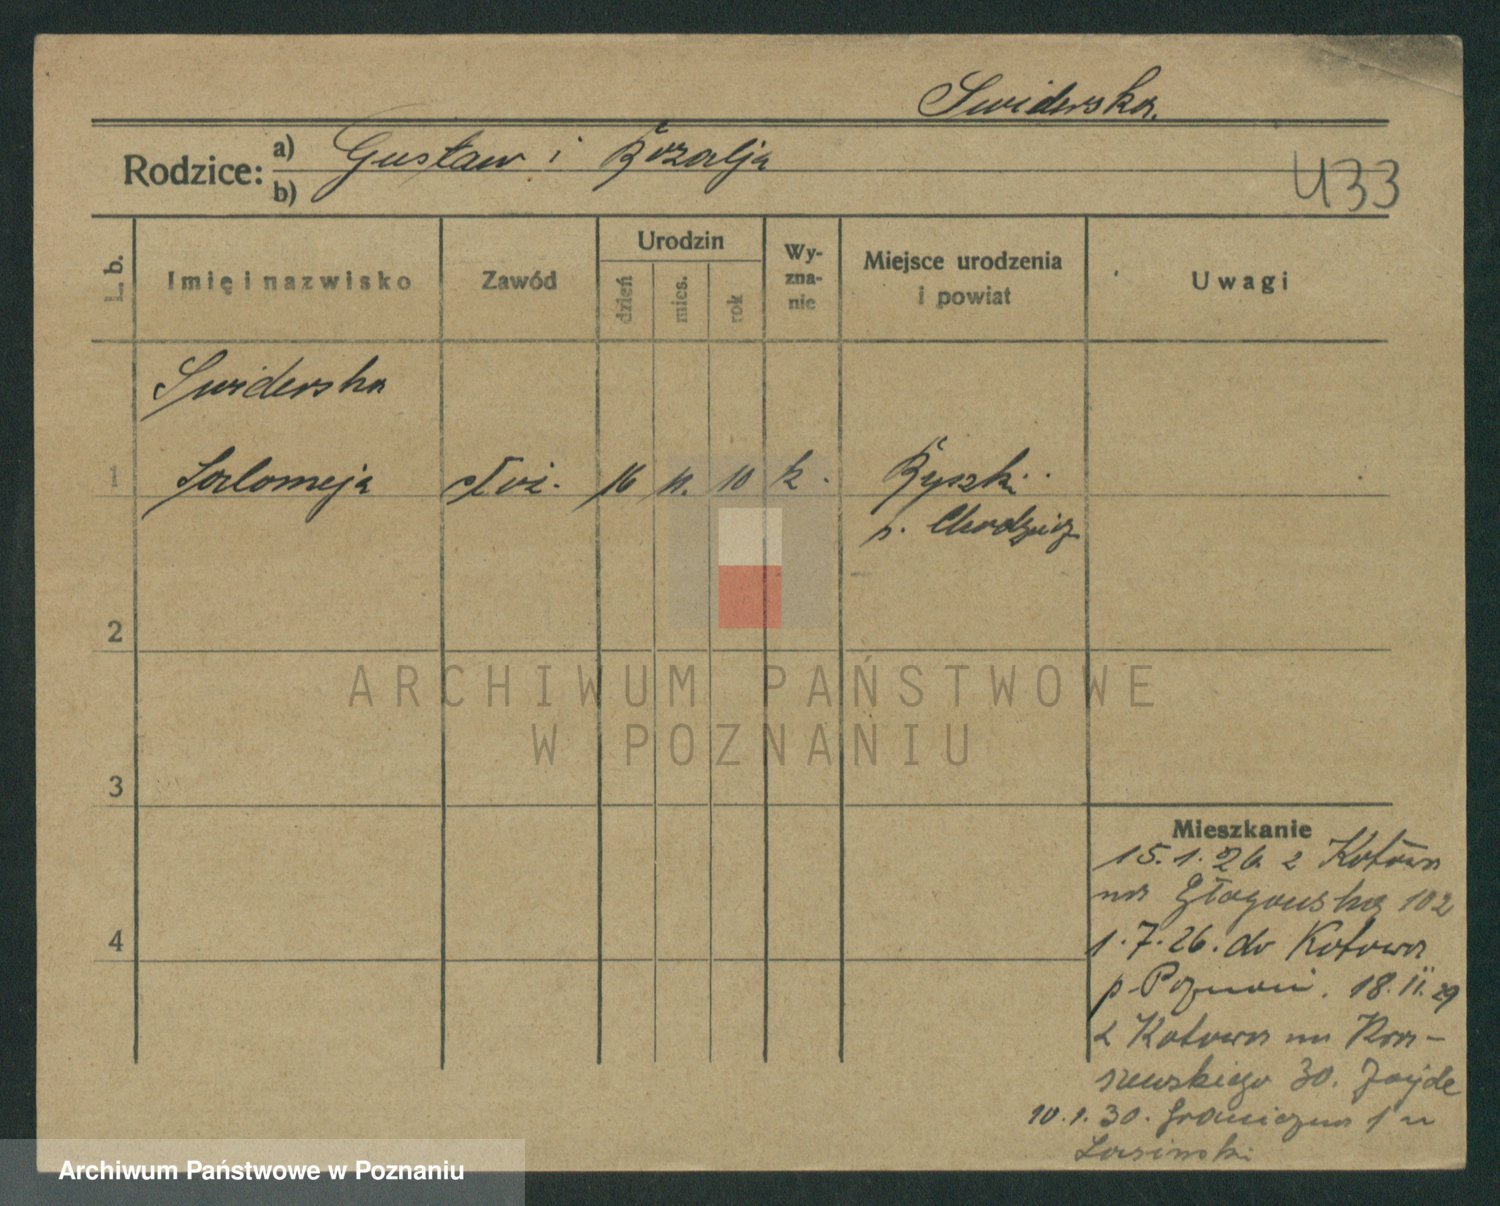 Swiderska.
Rodzice: a) Gustaw i Rozalja
b)
433
L. b.
Imię i nazwisko
Zawód
Urodzin
dzień
mies.
rok
Wy-
zna-
nie
Miejsce urodzenia
i powiat
Uwagi
Swiderska
1 Salomeja służ. 16 11. 10 k. Ryszki.
p. Chodzież
2
3
4
Mieszkanie
15.1.26 z Kotowa
na Głogowską 102
1.7.26. do Kotowa
p. Poznań. 18.II.29
z Kotowa na Kra-
szewskiego 30.
10.1.30. Graniczna 1 u
Lasinski
ARCHIWUM PAŃSTWOWE
W POZNANIU
Archiwum Państwowe w Poznaniu